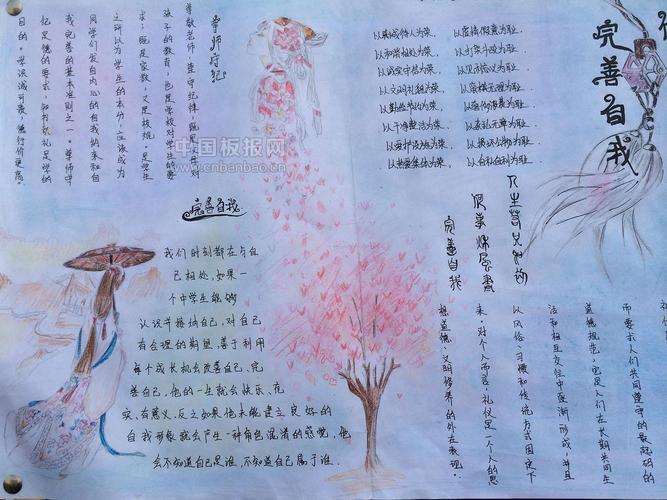 尊师守纪
尊敬老师，遵守纪律，既是对
孩子的教育，也是学校对学生的要
求；既是家教，又是校规。是学生
之所以为学生的本分，应该成为
同学们发自内心的自我约束和自
我完善的基本准则之一。尊师守
纪是德的要求，知书识礼是学的
目的。学识诚可贵，德行价更高。
中国板报网
www.cnbanbao.cn
完善自我
我们时刻都在与自
己相处，如果一
个中学生能够
认识并接纳自己，对自己
有合理的期望，善于利用
每个成长机会改善自己、完
善自己，他的一生就会快乐、充
实、有意义，反之如果他未能建立良好的
自我形象就会产生一种角色混淆的感觉，他
会不知道自己是谁，不知道自己属于谁。
以真诚待人为荣，
以和谐相处为荣，
以诚实守信为荣，
以文明礼貌为荣，
以勤俭节约为荣，
以干净整洁为荣，
以爱护设施为荣，
以热爱集体为荣，
以打架斗殴为耻，
以见利忘义为耻，
以损公肥私为耻，
以自私自利为耻。
完善自我
完善自我
而要求人们共同遵守的最起码的
道德规范，它是人们在长期共同生
活和相互交往中逐渐形成，并且
以风俗、习惯和传统方式固定下
来。对个人而言，礼仪是一个人的思
想道德、文明修养的外在表现。